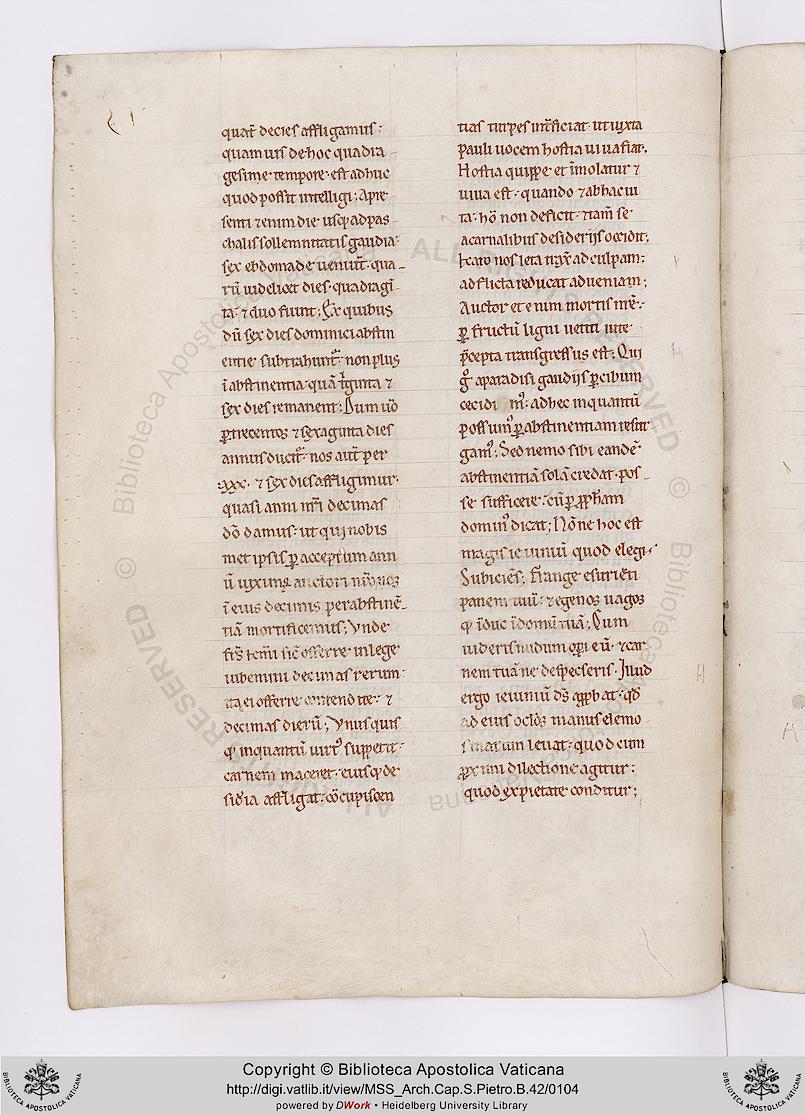 quat̄ decies affligamus:
quamuis de hoc quadra
gesime tempore est adhuc
quod possit intelligi; Apre
senti & enim die usq; ad pas
chalis sollemnitatis gaudia:
sex ebdomade ueniunt. qua
rū uidelicet dies quadragi
ta. & duo fiunt; Ex quibus
dū sex dies dominici abstin
entie subtrahunt̄. non plus
ī abstinentia quā t̄ginta &
sex dies remanent; Dum uō
p̄ trecentos & sexaginta dies
annus ducit̄. nos aut̄ per
.xxx. & sex dies affligimur.
quasi anni nr̄i decimas
dō damus. ut qui nobis
met ipsis p̄ acceptum ann
ū uiximus auctori nr̄o nos
ī eius decimis per abstinē
tiā mortificemus; Vnde
offerre in lege
iubemini decimas rerum:
ita ei offerre contendite. &
decimas dierū; Vnus quis
q; inquantū uirt᾽ suppetit:
carnem maceret. eiusq; de
sid̄ia affligat. cōcupiscen
tias turpes int̄ficiat. ut iuxta
pauli uocem hostia uiua fiat.
Hostia quippe et īmolatur &
uiua est. quando & ab hac ui
ta. hō non deficit. & tam̄ se
a carnalibus desiderijs occidit;
Caro nos leta ad culpam:
adflicta reducat ad ueniam;
Auctor et enim mortis nr̄e.
p̄ fructū ligni uetiti uite
p̄cepta transgressus est. Qui
g᾽ a paradisi gaudijs p̄ cibum
cecidim᾽. ad hec inquantū
possum᾽ p̄ abstinentiam resur
gam᾽; Sed nemo sibi eandē
abstinentiā solā credat pos
se sufficere. cū p̄ pph̄am
domin᾽ dicat; Nōne hoc est
magis ieiuniū quod elegi.
Subiciēs; Frange esurienti
panem tuū. & egenos uagos
q; īduc ī domū tuā; Cum
uideris nudum opi eū. & car
nem tuā ne despexeris. Illud
ergo ieiuniū ds̄ app̄bat. qd̄
ad eius ocl̄os manus elemo
sinarum leuat. quod cum
p̄ximi dilectione agitur;
quod ex pietate conditur;
Copyright © Biblioteca Apostolica Vaticana
http://digi.vatlib.it/view/MSS_Arch.Cap.S.Pietro.B.42/0104
powered by DWork • Heidelberg University Library